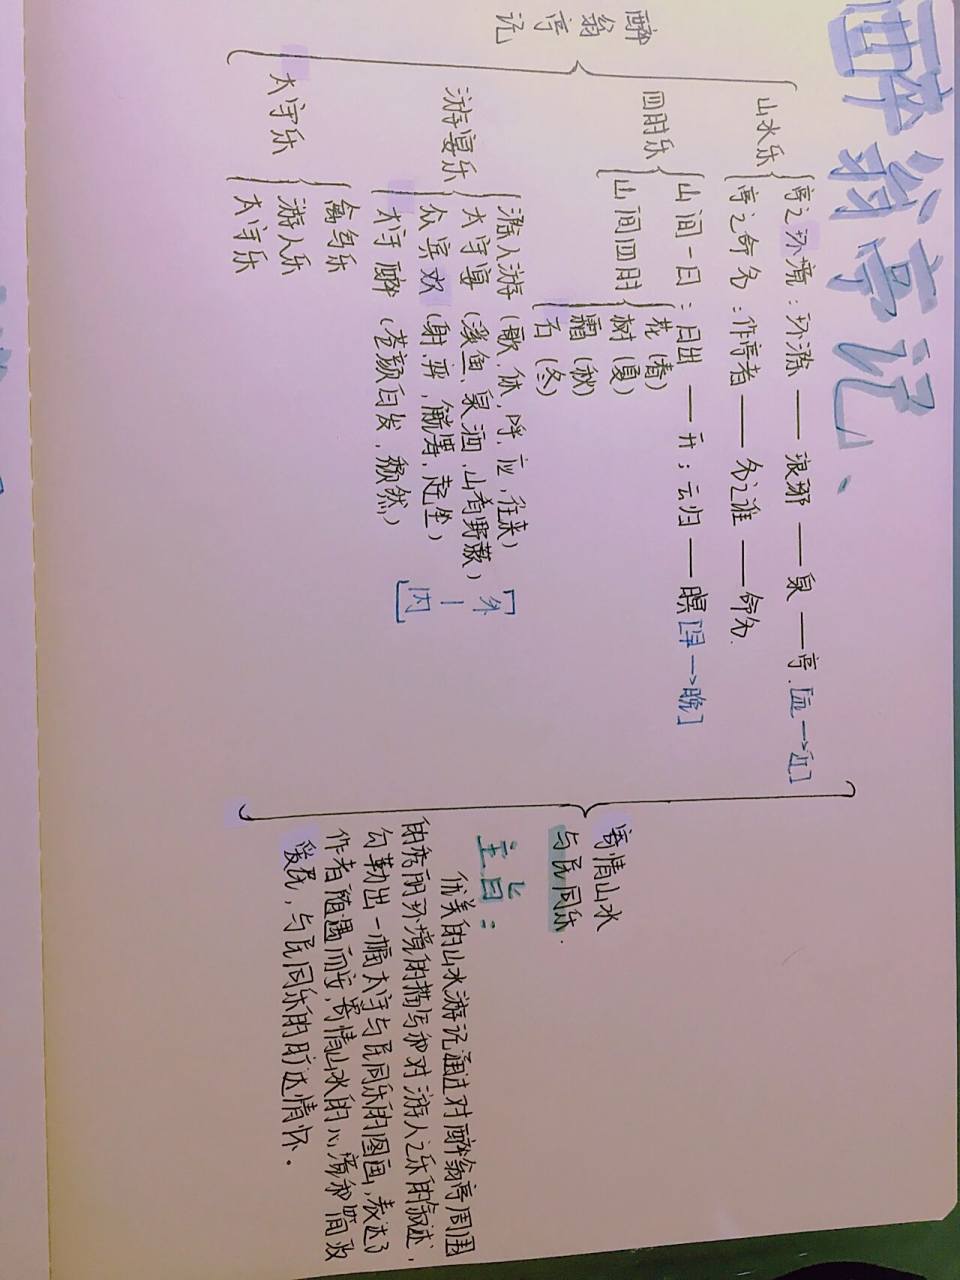 醉翁亭记、
醉翁亭记
山水乐
亭之环境：环滁——琅琊——泉——亭.[远→近]
亭之命名：作亭者——名之谁——命名.
四时乐
山间一日：日出——开；云归——暝[早→晚]
山间四时
花（春）
树（夏）
霜（秋）
石（冬）
游宴乐
滁人游（歌,休,呼,应,往来）
太守宴（溪鱼,泉酒,山肴野蔌）
众宾欢（射,弈,觥筹,起坐）
太守醉（苍颜白发,颓然）
[外—内]
太守乐
禽鸟乐
游人乐
太守乐
寄情山水
与民同乐.
主旨：
优美的山水游记通过对醉翁亭周围
的秀丽环境的描写和对游人之乐的叙述,
勾勒出一幅太守与民同乐的图画,表达了
作者随遇而安,寄情山水的心情和简政
爱民,与民同乐的旷达情怀.